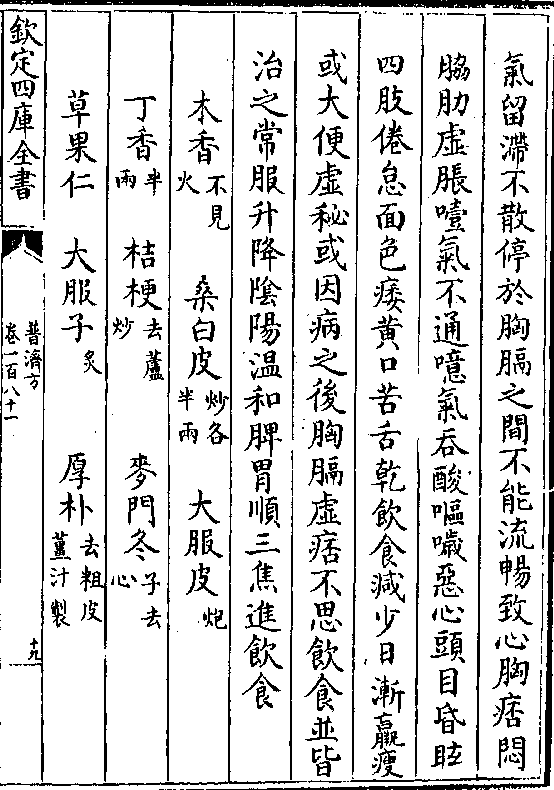 氣留滯不散停於胸膈之間不能流暢致心胸痞悶
脇肋虛脹噎氣不通噫氣吞酸嘔噦惡心頭目昏眩
四肢倦怠面色痿黃口苦舌乾飲食減少日漸羸瘦
或大便虛秘或因病之後胸膈虛痞不思飲食並皆
治之常服升降陰陽溫和脾胃順三焦進飲食
木香不見火 桑白皮炒各半兩 大服皮炮
丁香半兩 桔梗去蘆炒 麥門冬子去心
草果仁 大服子炙 厚朴去粗皮薑汁製
欽定四庫全書
普濟方
卷一百八十一
十九